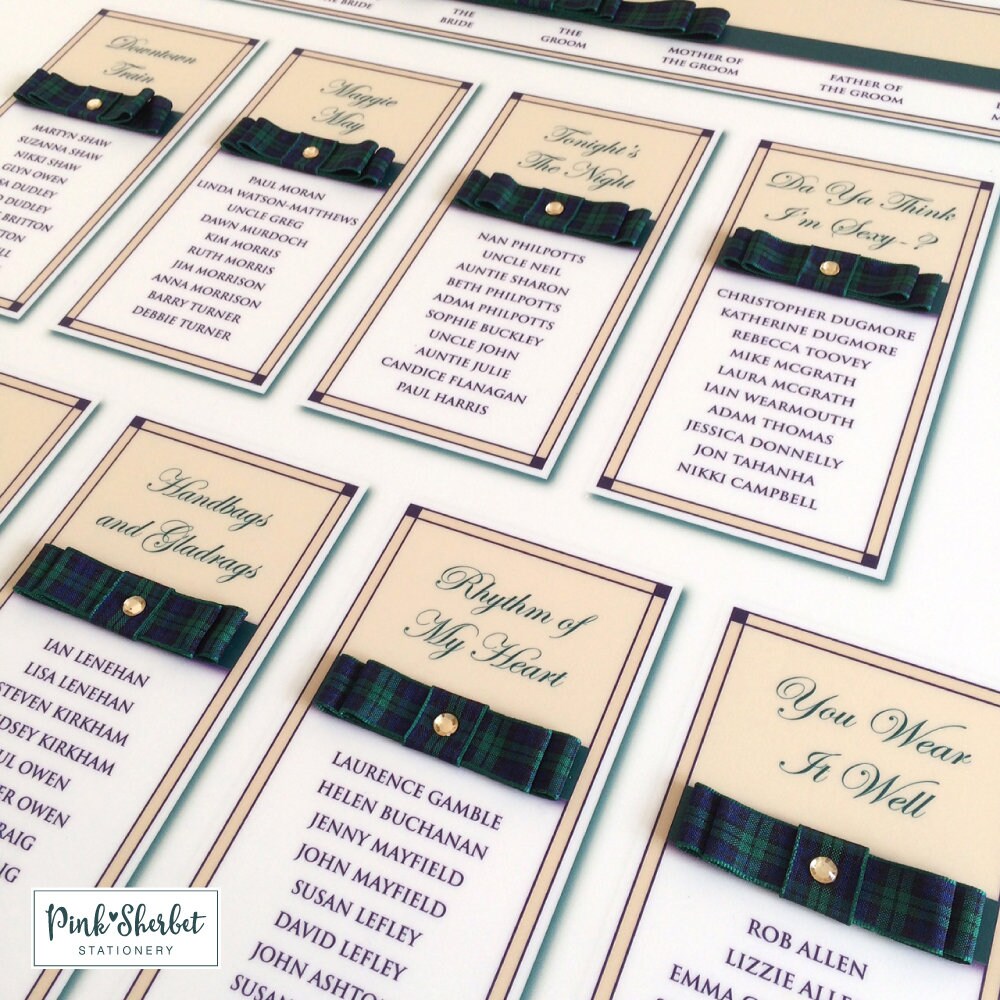 THE BRIDE
THE
BRIDE
THE
GROOM
MOTHER OF
THE GROOM
FATHER OF
THE GROOM
Downtown
Train
MARTYN SHAW
SUZANNA SHAW
NIKKI SHAW
GLYN OWEN
DUDLEY
DUDLEY
BRITTON
Maggie
May
PAUL MORAN
LINDA WATSON-MATTHEWS
UNCLE GREG
DAWN MURDOCH
KIM MORRIS
RUTH MORRIS
JIM MORRISON
ANNA MORRISON
BARRY TURNER
DEBBIE TURNER
Tonight's
The Night
NAN PHILPOTTS
UNCLE NEIL
AUNTIE SHARON
BETH PHILPOTTS
ADAM PHILPOTTS
SOPHIE BUCKLEY
UNCLE JOHN
AUNTIE JULIE
CANDICE FLANAGAN
PAUL HARRIS
Da Ya Think
I'm Sexy-?
CHRISTOPHER DUGMORE
KATHERINE DUGMORE
REBECCA TOOVEY
MIKE MCGRATH
LAURA MCGRATH
IAIN WEARMOUTH
ADAM THOMAS
JESSICA DONNELLY
JON TAHANHA
NIKKI CAMPBELL
Handbags
and Gladrags
IAN LENEHAN
LISA LENEHAN
STEVEN KIRKHAM
KIRKHAM
OWEN
OWEN
Rhythm of
My Heart
LAURENCE GAMBLE
HELEN BUCHANAN
JENNY MAYFIELD
JOHN MAYFIELD
SUSAN LEFLEY
DAVID LEFLEY
JOHN ASHTO
SUSAN
You Wear
It Well
ROB ALLEN
LIZZIE ALLE
EMMA
Pink Sherbet
STATIONERY